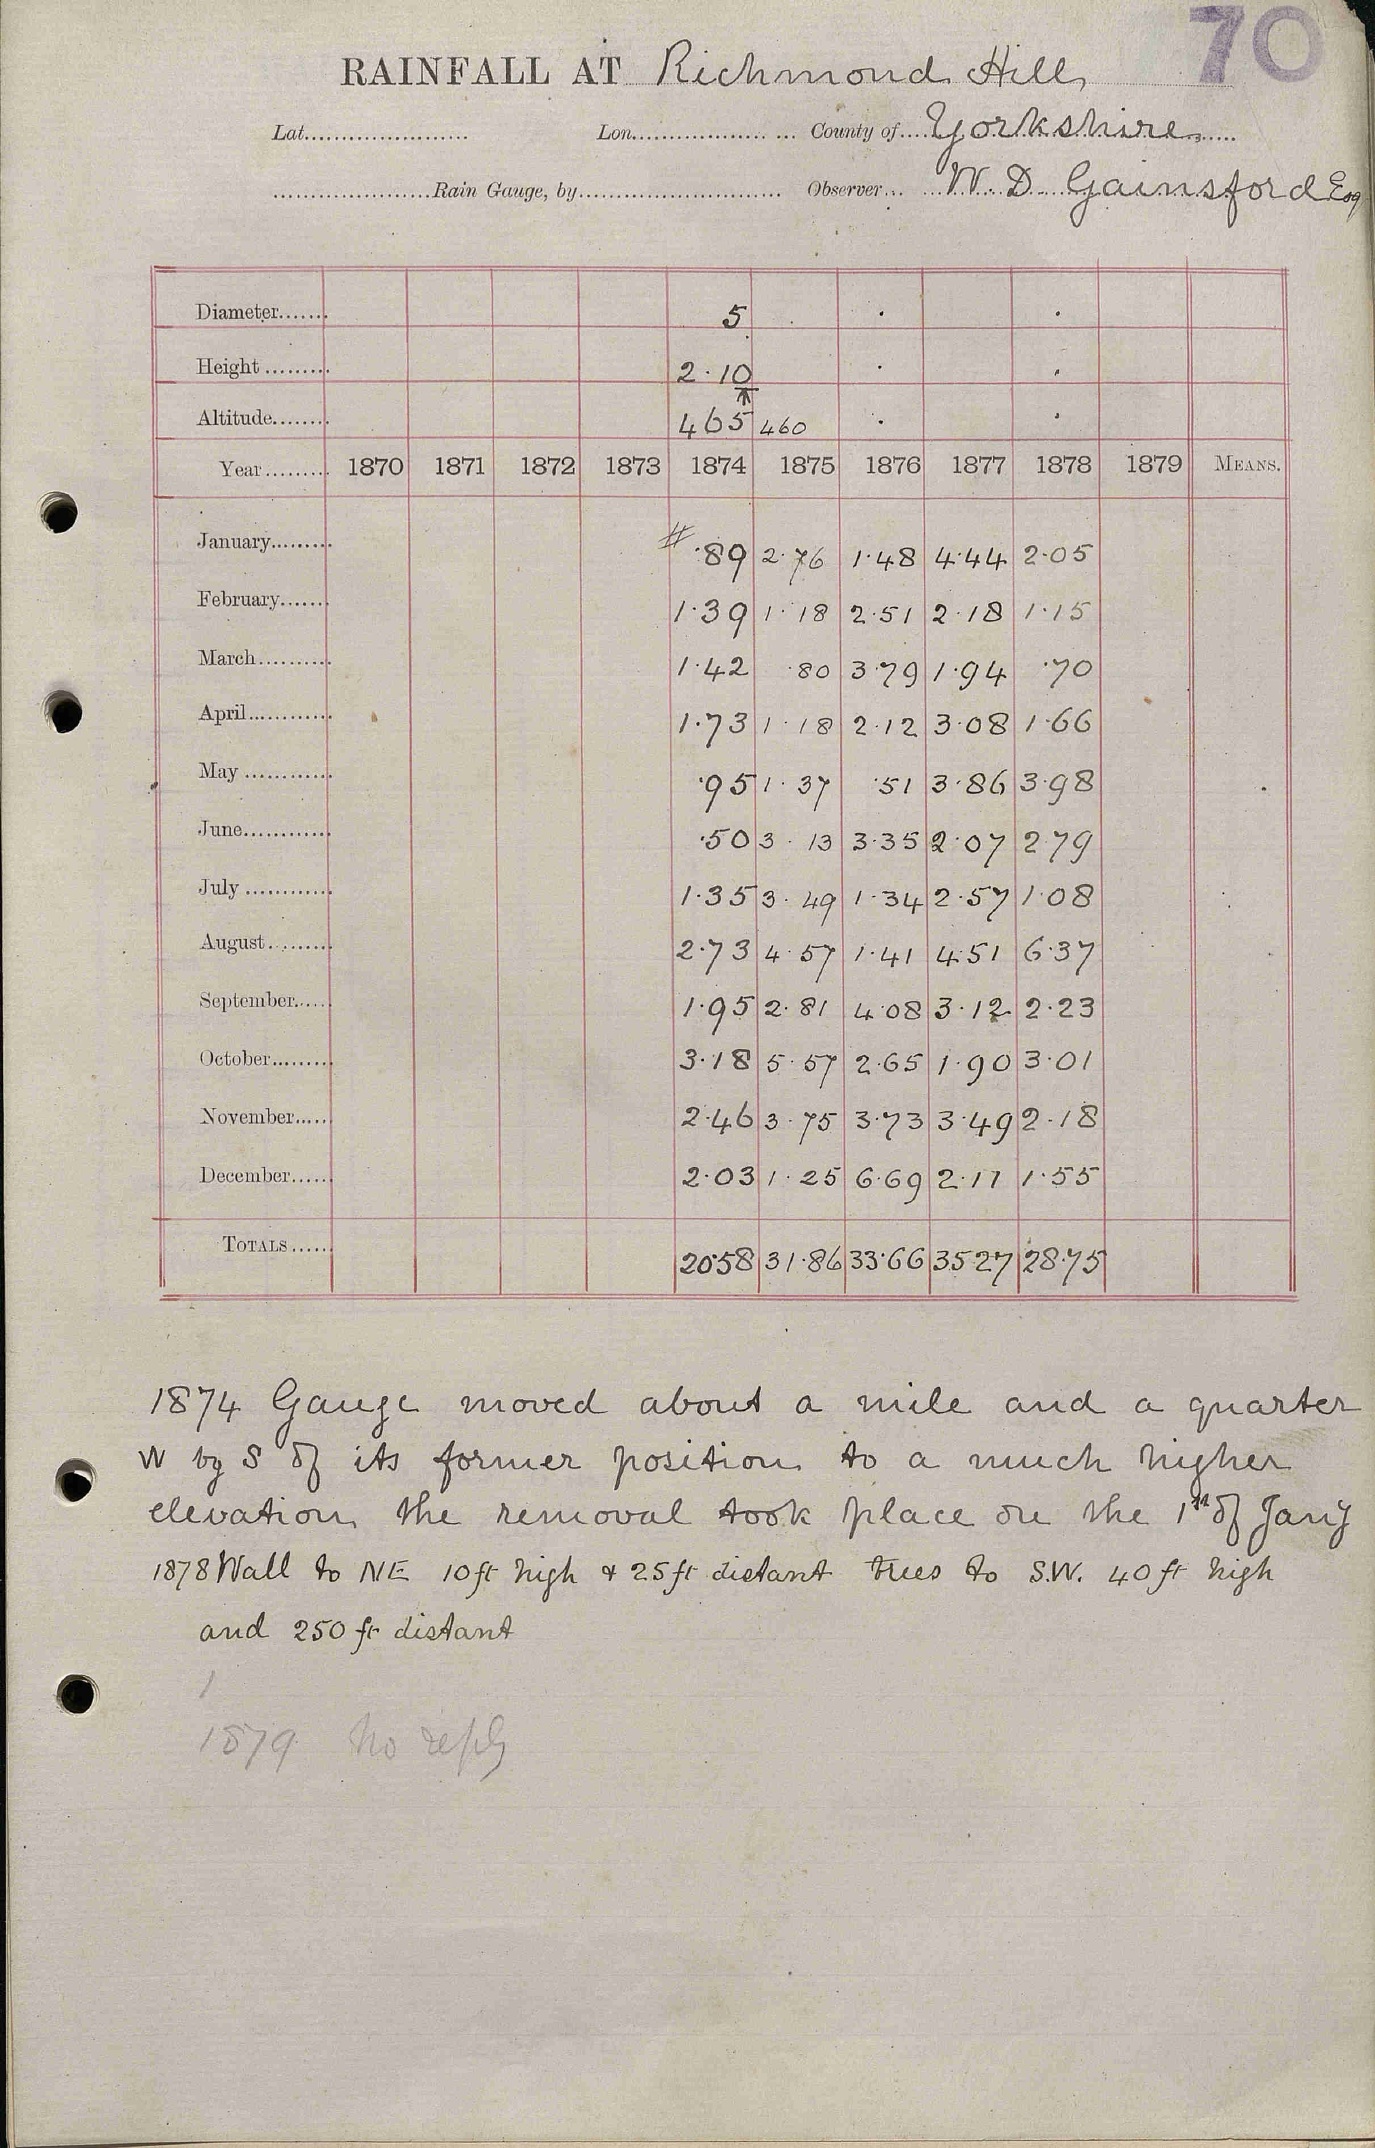 70
RAINFALL AT Richmond Hill
Lat. Lon. County of Yorkshire
Rain Gauge, by Observer W. D. Gainsford Esq
Diameter 5
Height 2·10
Altitude 465 460
Year 1870 1871 1872 1873 1874 1875 1876 1877 1878 1879 MEANS.
January # ·89 2·76 1·48 4·44 2·05
February 1·39 1·18 2·51 2·18 1·15
March 1·42 ·80 3·79 1·94 ·70
April 1·73 1·18 2·12 3·08 1·66
May ·95 1·37 ·51 3·86 3·98
June ·50 3·13 3·35 2·07 2·79
July 1·35 3·49 1·34 2·57 1·08
August 2·73 4·57 1·41 4·51 6·37
September 1·95 2·81 4·08 3·12 2·23
October 3·18 5·57 2·65 1·90 3·01
November 2·46 3·75 3·73 3·49 2·18
December 2·03 1·25 6·69 2·11 1·55
TOTALS 20·58 31·86 33·66 35·27 28·75
1874 Gauge moved about a mile and a quarter
W by S of its former position to a much higher
elevation the removal took place on the 1st of Jany
1878 Wall to NE 10 ft high & 25 ft distant trees to S.W. 40 ft high
and 250 ft distant
1
1879 No reply